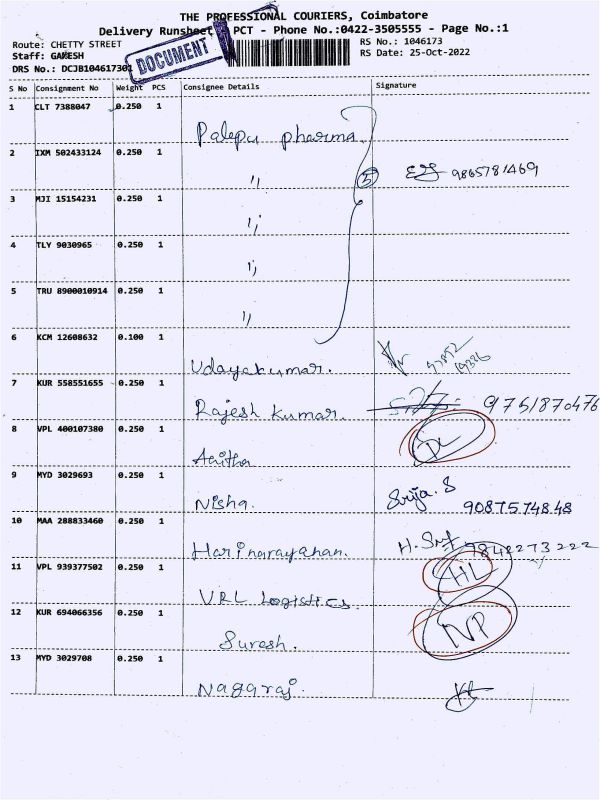 THE PROFESSIONAL COURIERS, Coimbatore
Delivery Runsheet PCT - Phone No.:0422-3505555 - Page No.:1
DOCUMENT
Route: CHETTY STREET
RS No.: 1046173
Staff: GANESH
RS Date: 25-Oct-2022
DRS No.: DCJB104617301
S No Consignment No Weight PCS Consignee Details Signature
1 CLT 7388047 0.250 1
Palepu pharma
2 IXM 502433124 0.250 1
〃 5 9865781469
3 MJI 15154231 0.250 1
〃
4 TLY 9030965 0.250 1
〃
5 TRU 8900010914 0.250 1
〃
6 KCM 12608632 0.100 1
Udayakumar.
7 KUR 558551655 0.250 1
Rajesh Kumar. 9751870476
8 VPL 400107380 0.250 1
9 MYD 3029693 0.250 1
Nisha. Srija.S
9087574848
10 MAA 288833460 0.250 1
Harinarayanan. 9842273222
11 VPL 939377502 0.250 1
HL
VRL Logistics.
12 KUR 694066356 0.250 1
NP
Suresh.
13 MYD 3029708 0.250 1
Nagaraj.